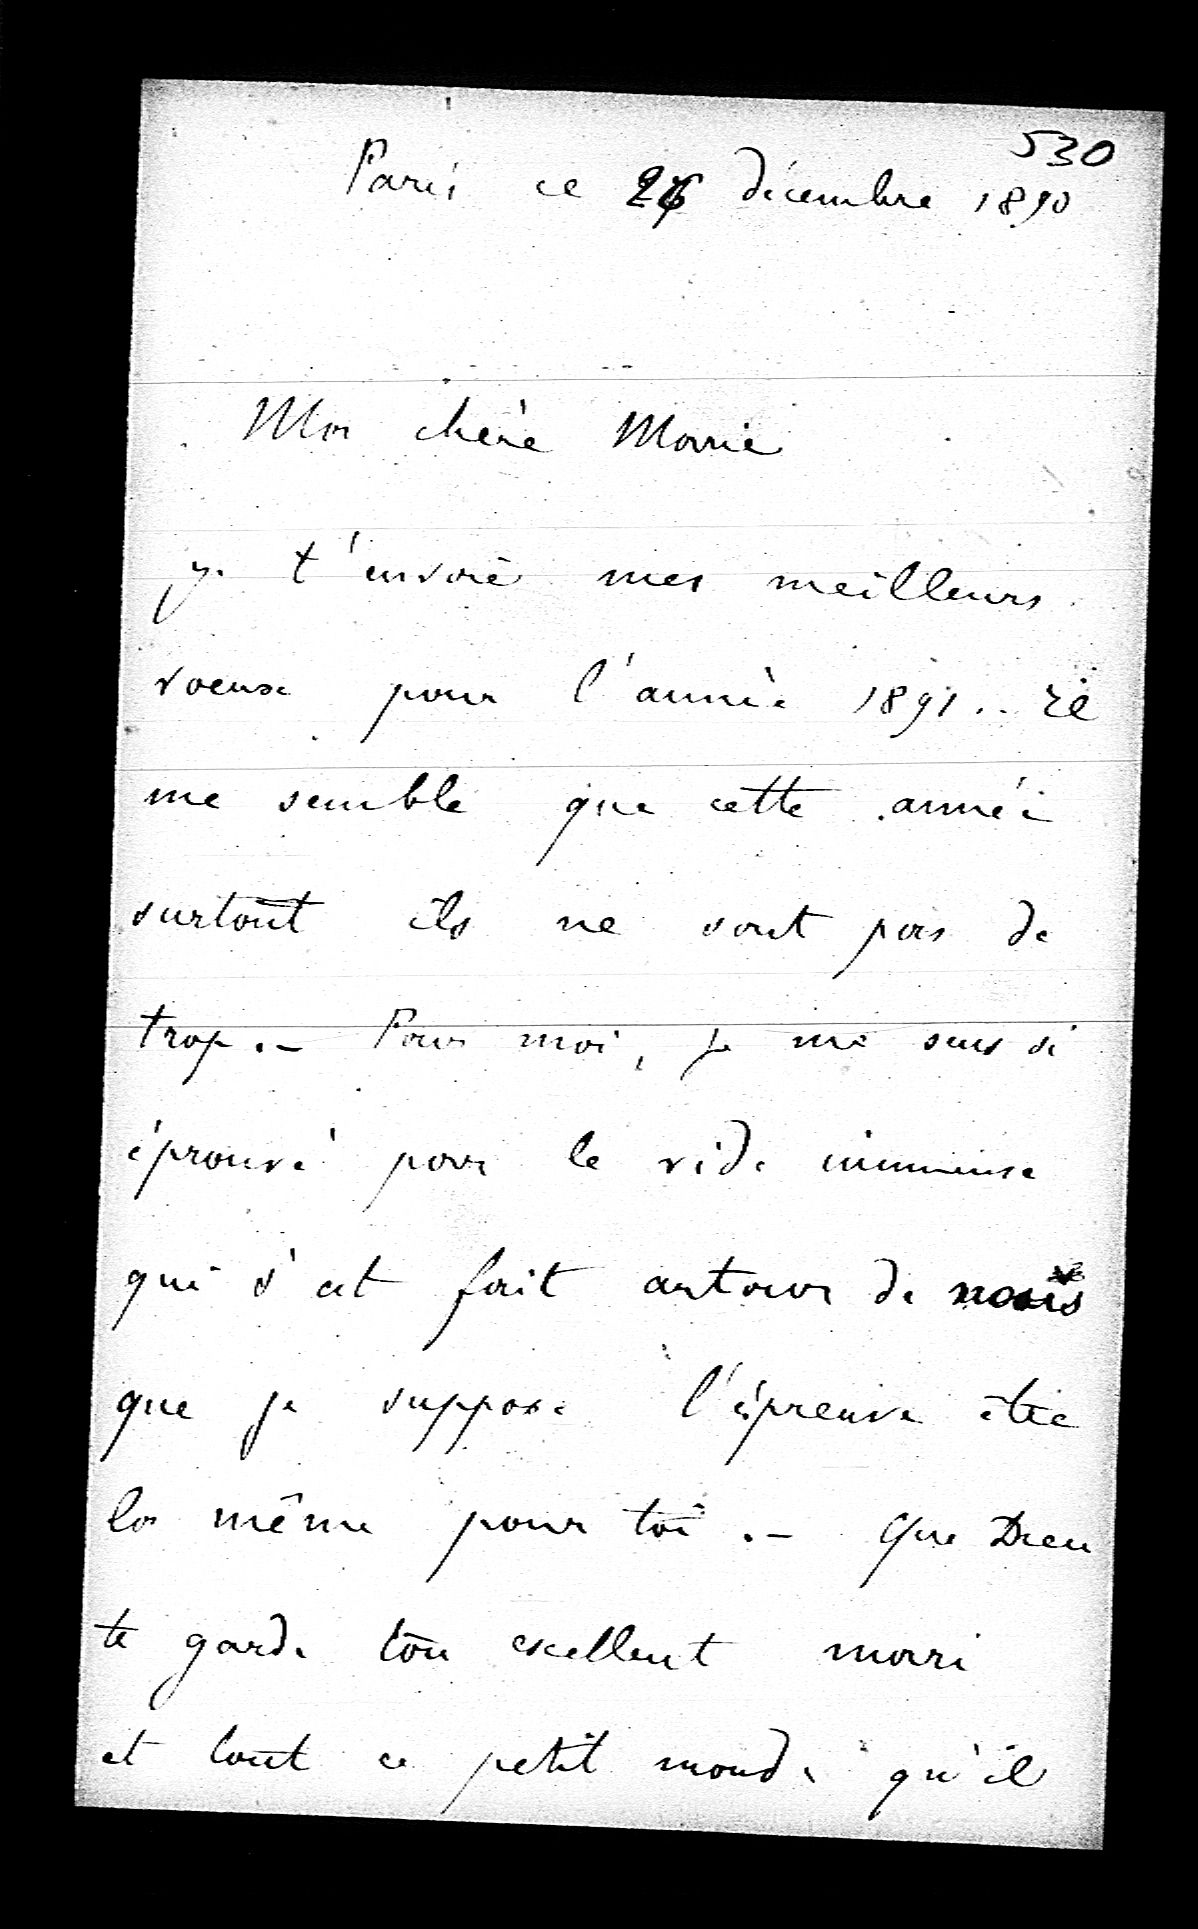 530
Paris ce 26 décembre 1890
Ma chère Marie
je t'envoie mes meilleurs
voeux pour l'année 1891.. Il
me semble que cette année
surtout ils ne sont pas de
trop. – Pour moi, je me sens si
éprouvé par le vide immense
qui s'est fait autour de nous
que je suppose l'épreuve être
la même pour toi. – Que Dieu
te garde ton excellent mari
et tout ce petit monde qu'il